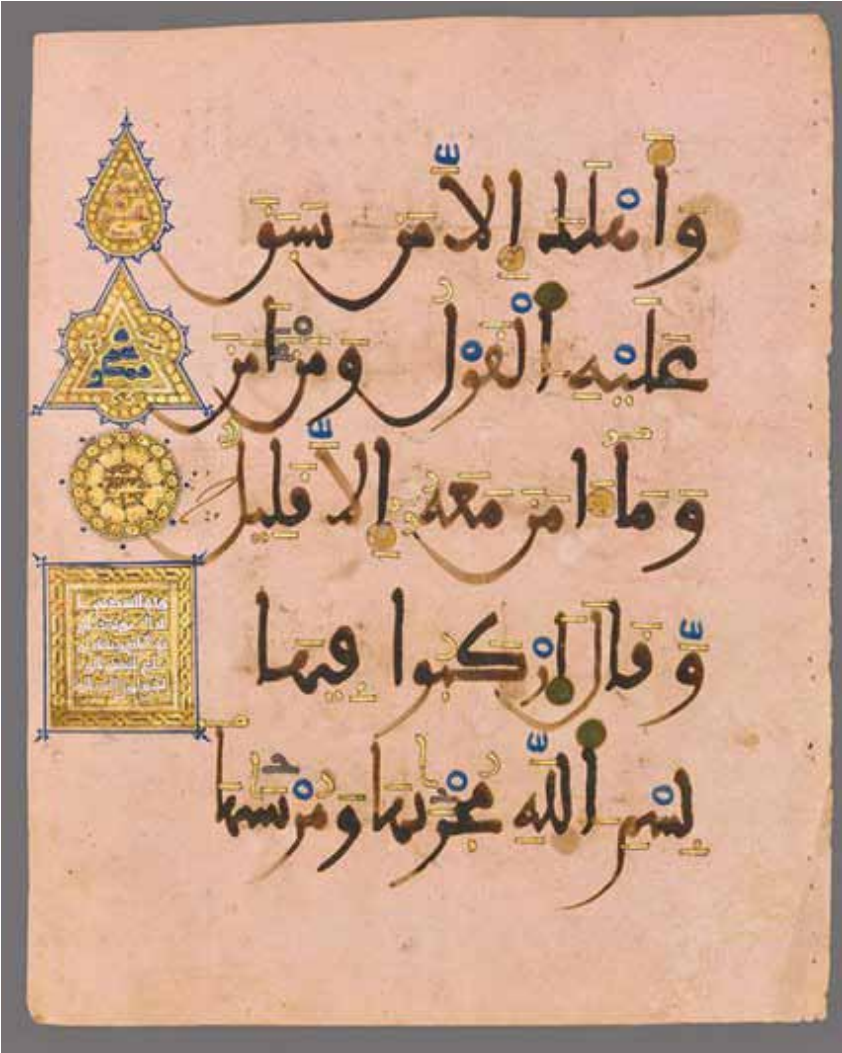 وَأَهْلَكَ إِلَّا مَن سَبَقَ
عَلَيْهِ الْقَوْلُ وَمَنْ ءَامَنَ
وَمَا ءَامَنَ مَعَهُ إِلَّا قَلِيلٌ
وَّقَالَ ارْكَبُوا فِيهَا
بِسْمِ اللَّهِ مُجْرَيهَا وَمُرْسَيهَا